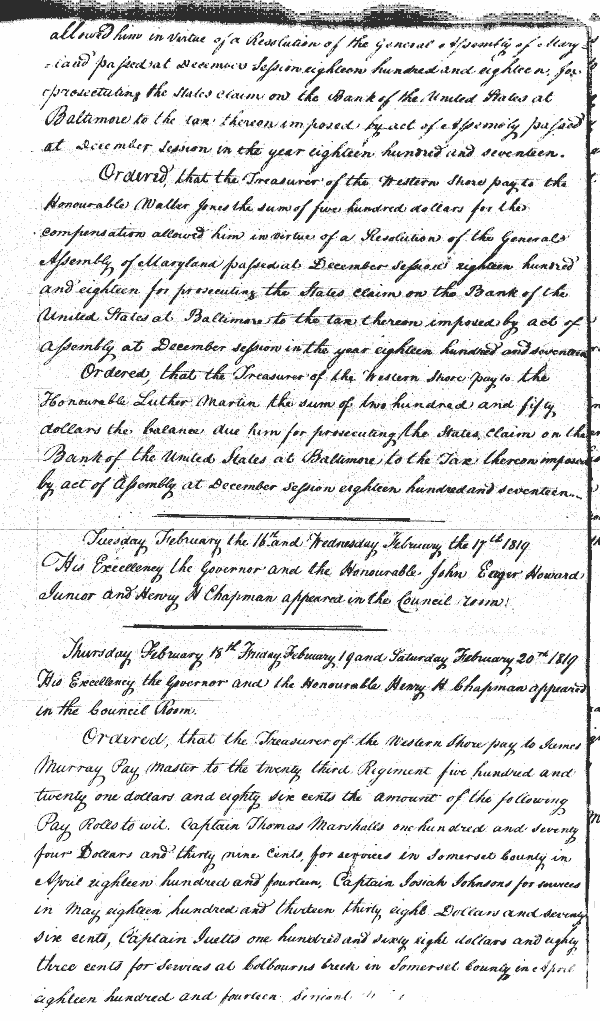 allowed him in virtue of a Resolution of the General Assembly of Mary
-land passed at December Session eighteen hundred and eighteen, for
prosecuting the States claim on the Bank of the United States at
Baltimore to the tax thereon imposed by act of Assembly passed
at December Session in the year eighteen hundred and seventeen.
Ordered, that the Treasurer of the Western Shore pay to the
Honourable Walter Jones the sum of five hundred dollars for the
compensation allowed him in virtue of a Resolution of the General
Assembly of Maryland passed at December Session eighteen hundred
and eighteen for prosecuting the States claim on the Bank of the
United States at Baltimore to the tax thereon imposed by act of
Assembly at December session in the year eighteen hundred and seventeen
Ordered, that the Treasurer of the Western Shore pay to the
Honourable Luther Martin the sum of two hundred and fifty
dollars the balance due him for prosecuting the States, claim on the
Bank of the United States at Baltimore to the Tax thereon imposed
by act of Assembly at December Session eighteen hundred and seventeen
Tuesday February the 16th and Wednesday February the 17th 1819
His Excellency the Governor and the Honourable John Eager Howard
Junior and Henry H Chapman appeared in the Council room
Thursday February 18th Friday February 19 and Saturday February 20th 1819
His Excellency the Governor and the Honourable Henry H Chapman appeared
in the Council Room.
Ordered, that the Treasurer of the Western Shore pay to James
Murray Pay master to the twenty third Regiment five hundred and
twenty one dollars and eighty six cents the amount of the following
Pay Rolls to wit. Captain Thomas Marshalls one hundred and seventy
four Dollars and thirty nine Cents, for services in Somerset County in
April eighteen hundred and fourteen, Captain Josiah Johnsons for services
in May eighteen hundred and thirteen thirty eight Dollars and seventy
six cents, Captain one hundred and sixty eight dollars and eighty
three cents for services at Colbourns Creek in Somerset County in April
eighteen hundred and fourteen